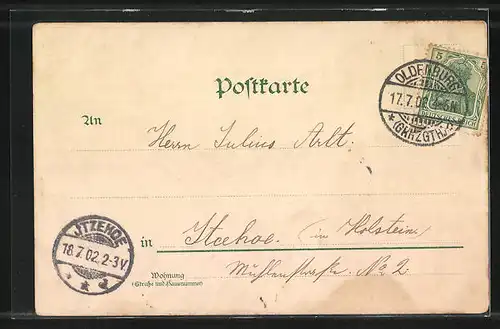 Postkarte
5 5
OLDENBURG
17.7.02
* (GRHZGTH.)
DEUTSCHES REICH
An
Herrn Julius Arlt.
ITZEHOE
18.7.02.2-3V.
in Itzehoe. in Holstein.
Wohnung
(Straße und Hausnummer)
Mühlenstraße. No 2.